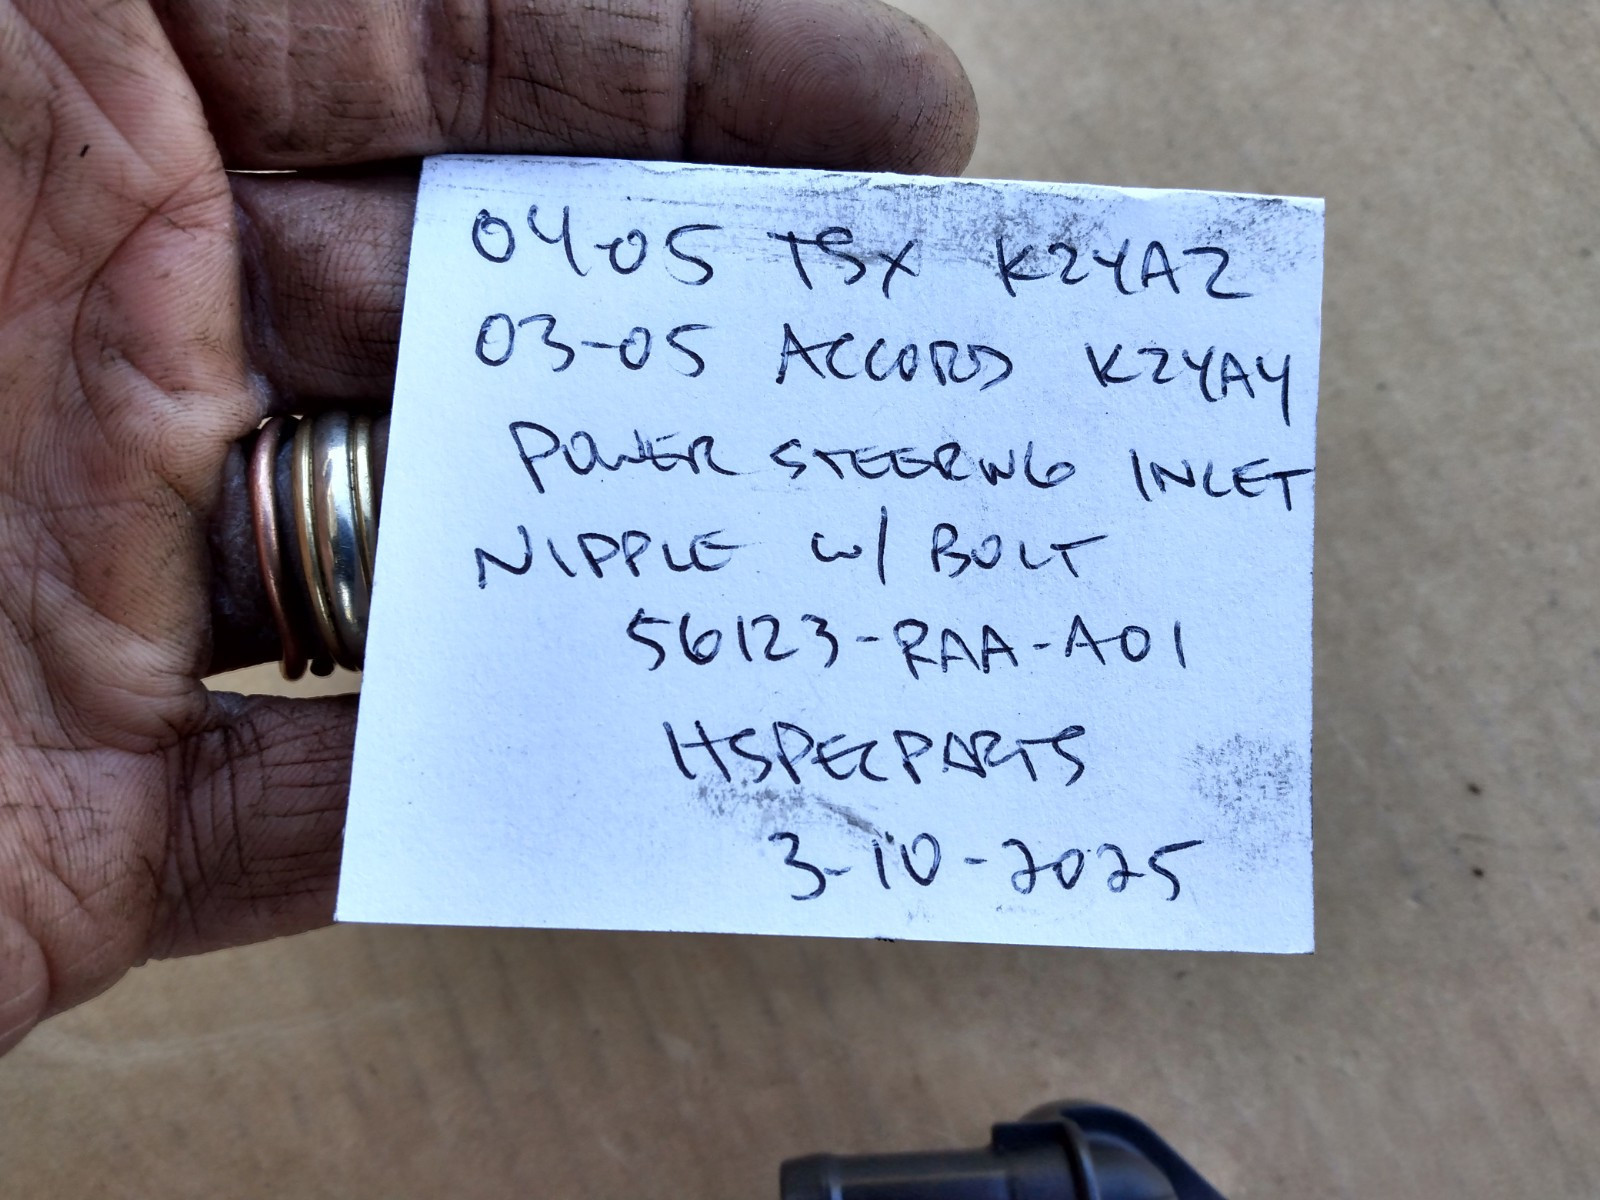 04-05 TSX K24A2
03-05 ACCORD K24A4
POWER STEERING INLET
NIPPLE w/ BOLT
56123-RAA-A01
HSPECPARTS
3-10-2025